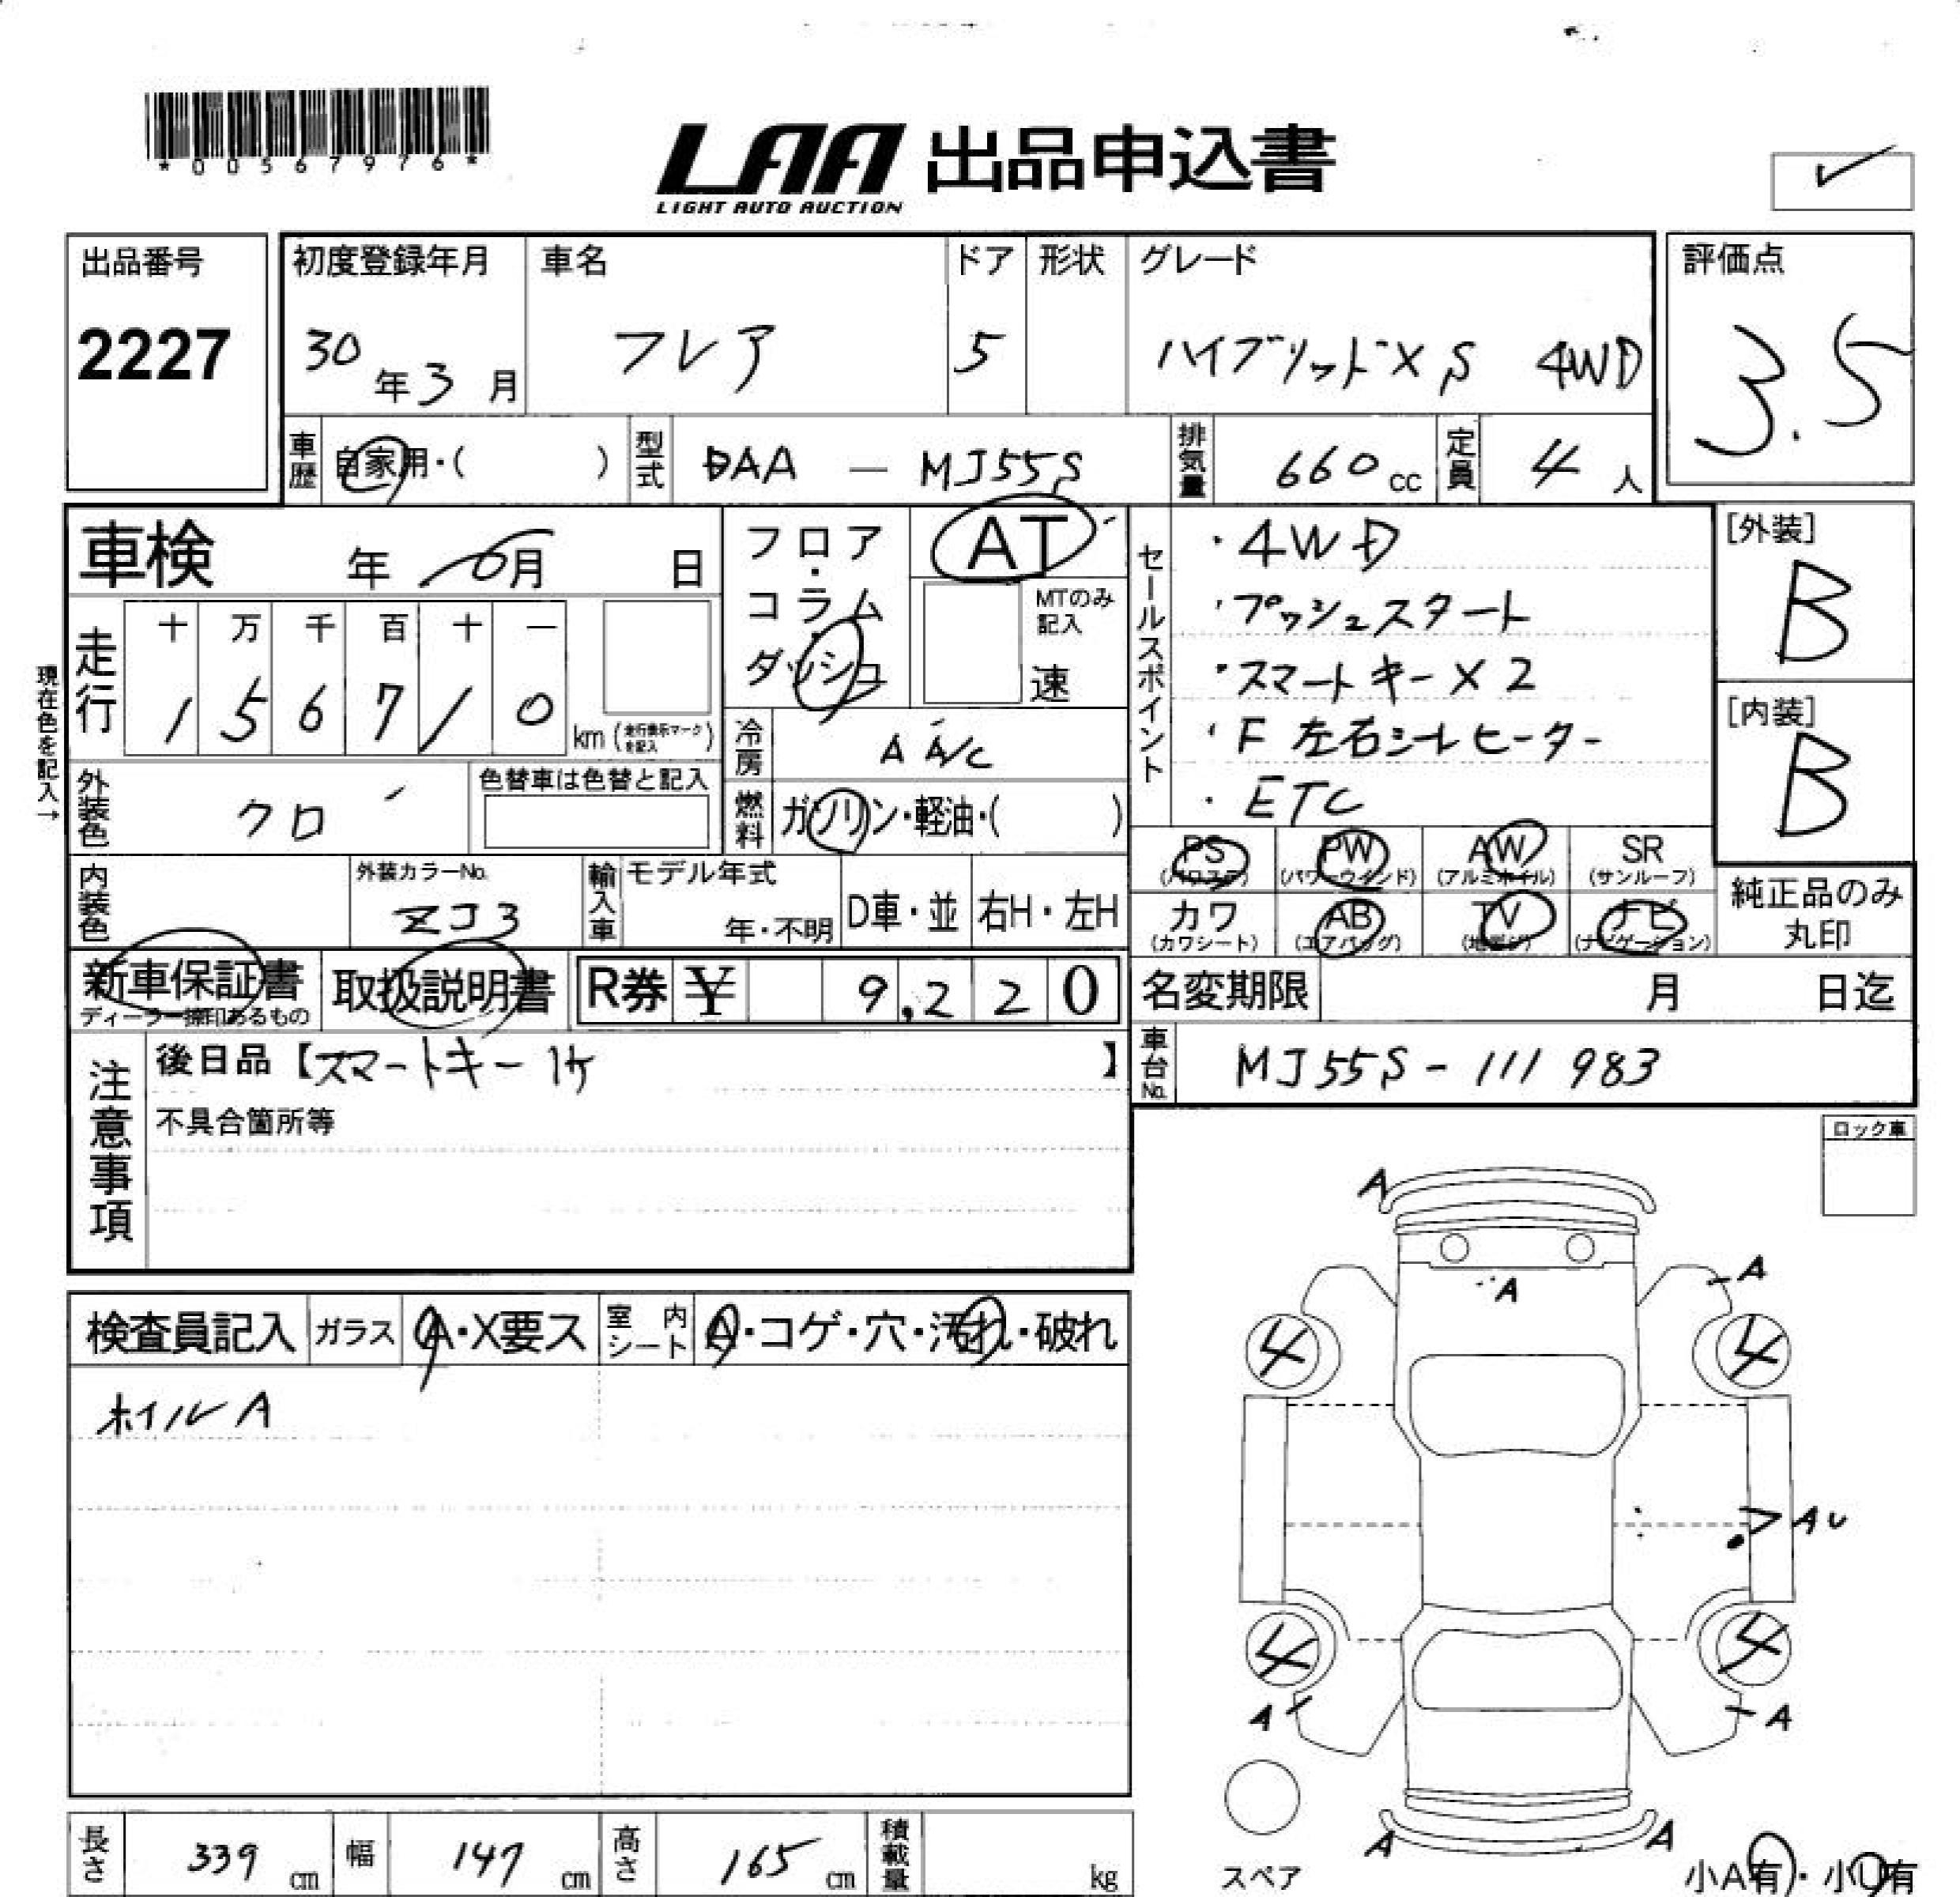 *00567976*
LAA 出品申込書
LIGHT AUTO AUCTION
出品番号 初度登録年月 車名 ドア 形状 グレード 評価点
2227 30年3月 フレア 5 ハイブリッドXS 4WD 3.5
車歴 自家用・( ) 型式 DAA — MJ55S 排気量 660cc 定員 4人
車検 年 月 日
フロア・コラム・ダッシュ AT
MTのみ記入
速
走行 十 万 千 百 十 一
1 5 6 7 1 0 km (走行表示マークを記入)
現在色を記入→
冷房 AA/C
外装色 クロ 色替車は色替と記入
燃料 ガソリン・軽油・( )
内装色 外装カラーNo. ZJ3 輸入車 モデル年式 年・不明 D車・並 右H・左H
セールスポイント
・4WD
・プッシュスタート
・スマートキー×2
・F左右シートヒーター
・ETC
[外装] B
[内装] B
PS (パワステ) PW (パワーウインド) AW (アルミホイル) SR (サンルーフ)
カワ (カワシート) AB (エアバッグ) TV (地デジ) ナビ (ナビゲーション)
純正品のみ丸印
新車保証書 ディーラー捺印あるもの 取扱説明書 R券 ¥ 9,220
名変期限 月 日迄
車台No. MJ55S-111983
注意事項
後日品【スマートキー1ケ】
不具合箇所等
ロック車
検査員記入 ガラス A・X要ス 室内シート A・コゲ・穴・汚れ・破れ
ホイルA
A
A
A
4 4
AU
4 4
A A
A A
スペア
小A有・小U有
長さ 339cm 幅 147cm 高さ 165cm 積載量 kg